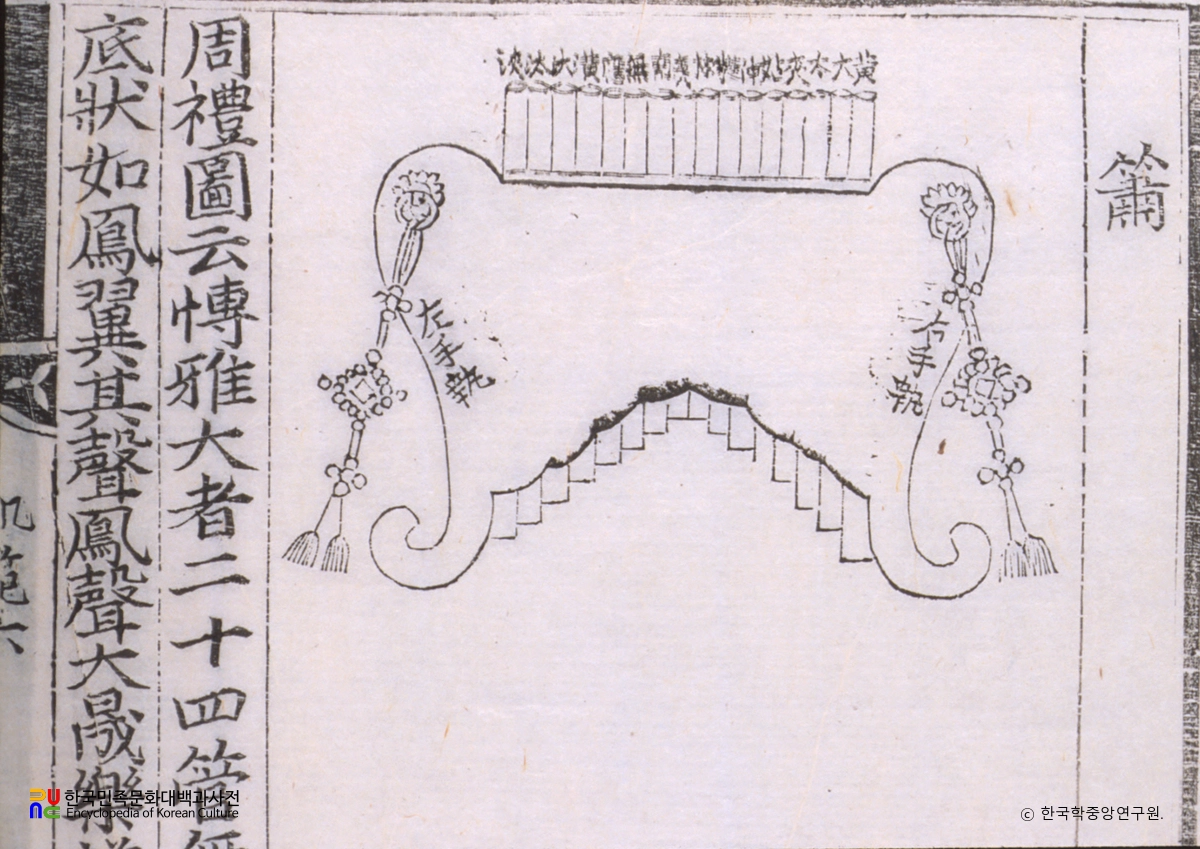 簫
黃大太夾姑仲蕤林夷南無應潢汏汰浹
右手執
左手執
周禮圖云慱雅大者二十四管
底狀如鳳翼其聲鳳聲大晟樂
한국민족문화대백과사전
Encyclopedia of Korean Culture
ⓒ 한국학중앙연구원.